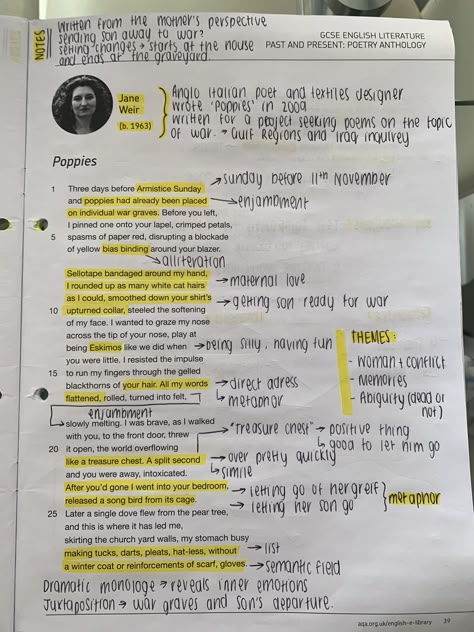 NOTES
Written from the mother's perspective
sending son away to war?
setting changes → starts at the house
and ends at the graveyard.
GCSE ENGLISH LITERATURE
PAST AND PRESENT: POETRY ANTHOLOGY
Jane
Weir
(b. 1963)
Anglo Italian poet and textiles designer
wrote 'Poppies' in 2009
written for a project seeking poems on the topic
of war. → Gulf Regions and Iraq inquirey
Poppies
1 Three days before Armistice Sunday → sunday before 11th November
and poppies had already been placed → enjambment
on individual war graves. Before you left,
I pinned one onto your lapel, crimped petals,
5 spasms of paper red, disrupting a blockade
of yellow bias binding around your blazer.
→ alliteration
Sellotape bandaged around my hand,
I rounded up as many white cat hairs → maternal love
as I could, smoothed down your shirt's → getting son ready for war
10 upturned collar, steeled the softening
of my face. I wanted to graze my nose
across the tip of your nose, play at
being Eskimos like we did when → being silly, having fun
you were little. I resisted the impulse
15 to run my fingers through the gelled
blackthorns of your hair. All my words → direct adress
flattened, rolled, turned into felt, → metaphor
THEMES:
- Woman + conflict
- Memories
- Abiguity (dead or
not)
enjambment
slowly melting. I was brave, as I walked
with you, to the front door, threw → "treasure chest" → positive thing
20 it open, the world overflowing → good to let him go
like a treasure chest. A split second → over pretty quickly
and you were away, intoxicated. → simile
After you'd gone I went into your bedroom, → letting go of her greif
released a song bird from its cage. → letting her son go } metaphor
25 Later a single dove flew from the pear tree,
and this is where it has led me,
skirting the church yard walls, my stomach busy
making tucks, darts, pleats, hat-less, without → list
a winter coat or reinforcements of scarf, gloves. → semantic field
Dramatic monologe → reveals inner emotions
Juxtaposition → war graves and son's departure.
aqa.org.uk/english-e-library 39